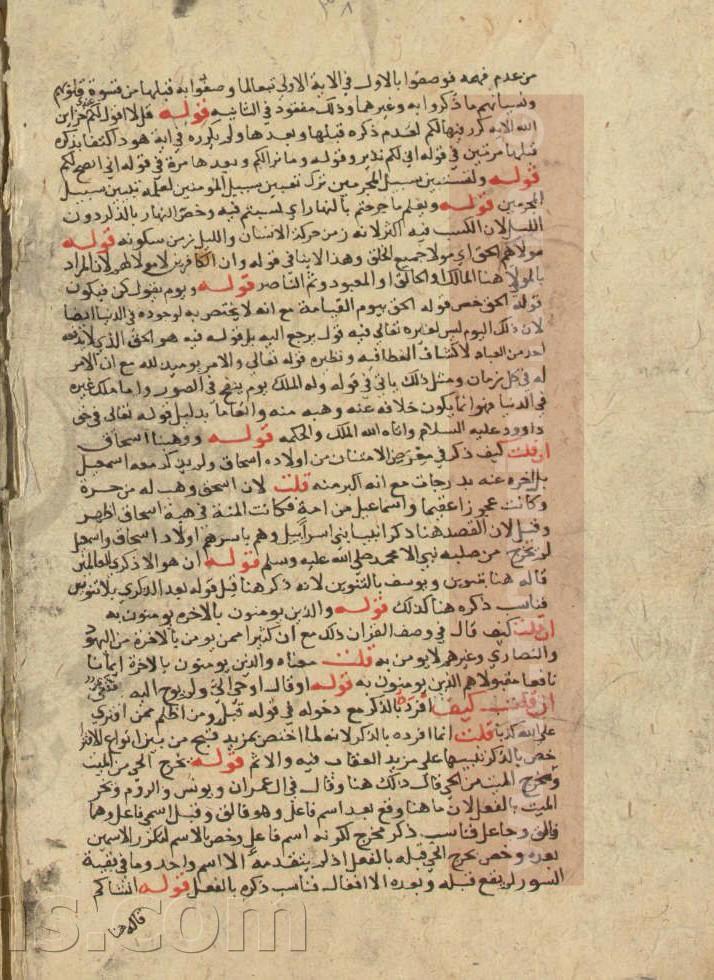 من عدم فهمه فوصفوا بالاول في الاية الاولي تبعا لما وصفوا به قبلها من قسوة قلوبهم
ونسيانهم ما ذكروا به وغيرهما وذلك مفقود في الثانيه قوله قل لا اقول لكم عندي خزاين
الله الايه كرر فيها لكم لعدم ذكره قبلها وبعدها ولم يكرره في اية هود اكتفا بذكره
قبلها مرتين في قوله اني لكم نذير وقوله وما نرالكم وبعدها مرة في قوله ان انصح لكم
قوله ولتستبين سبيل المجرمين ترك تعيين سبيل المومنين لعلمه بتبيين سبيل
المجرمين قوله ويعلم ما جرحتم بالنهار اي كسبتم فيه وخص النهار بالذكر دون
الليل لان الكسب فيه اكثر لانه زمن حركة الانسان والليل زمن سكونه قوله
مولاهم الحق اي مولا جميع الخلق وهذا لاينافي قوله وان الكافرين لا مولا لهم لان المراد
بالمولا هنا المالك او الخالق او المعبود وثم الناصر قوله ويوم يقول كن فيكون
قوله الحق خص قوله الحق بيوم القيامة مع انه لا يختص به لوجوده في الدنيا ايضا
لان ذلك اليوم ليس لغيره تعالي فيه قول يرجع اليه بل قوله فيه هو الحق الذي لا يدفعه
احد من العباد لانكشاف الغطا فيه ونظيره قوله تعالي والامر يوميذ لله مع ان الامر
له في كل زمان ومثل ذلك ياتي في قوله وله الملك يوم ينفخ في الصور واما ملك غيره
في الدنيا فهو انما يكون خلافه عنه وهبه منه وانعاما بدليل قوله تعالي في حق
داوود عليه السلام واتاه الله الملك والحكمه قوله ووهبنا اسحاق
ان قلت كيف ذكر في معرض الامتنان من اولاده اسحاق ولم يذكر معه اسمعيل
بل اخره عنه بدرجات مع انه اكبر منه قلت لان اسحق وهب له من حرة
وكانت عجوزا عقيما واسماعيل من امة فكانت المنة في هبة اسحاق اظهر
وقيل لان القصد هنا ذكر انبيا بني اسراييل وهم باسرهم اولاد اسحاق واسمعيل
لم يخرج من صلبه نبي الا محمد صلي الله عليه وسلم قوله ان هو الا ذكري للعالمين
قاله هنا بتنوين وبيوسف بالتنوين لانه ذكر هنا قبل قوله بعد الذكري بلا تنوين
فناسب ذكره هنا كذلك قوله والذين يومنون بالاخره يومنون به
ان قلت كيف قال في وصف القران ذلك مع ان كثيرا ممن يومن بالاخرة من اليهود
والنصاري وغيرهم لا يومن به قلت معناه والذين يومنون بالاخرة ايمانا
نافعا مقبولا هم الذين يومنون به قوله او قال اوحي الي ولم يوح اليه شي
ان قلت كيف افرده بالذكر مع دخوله في قوله قبل ومن اظلم ممن افتري
علي الله كذبا قلت انما افرده بالذكر لانه لما اختص بمزيد قبح من بين انواع الافترا
خص بالذكر تنبيها علي مزيد العقاب فيه والاثم قوله يخرج الحي من الميت
ومخرج الميت من الحي قال ذلك هنا وقال في ال عمران ويونس والروم ويخرج
الميت بالفعل لان ما هنا وقع بعد اسم فاعل وهو فالق وقبل اسمي فاعل وهما
فالق وجاعل فناسب ذكر مخرج لكونه اسم فاعل وخص بالاسم لتكرر الاسمين
بعده وخص يخرج الحي قبله بالفعل اذ لم يتقدمه الا اسم واحد وما في بقية
السور لم يقع قبله وبعده الا افعال فناسب ذكره بالفعل قوله انشاكم
قاله هنا